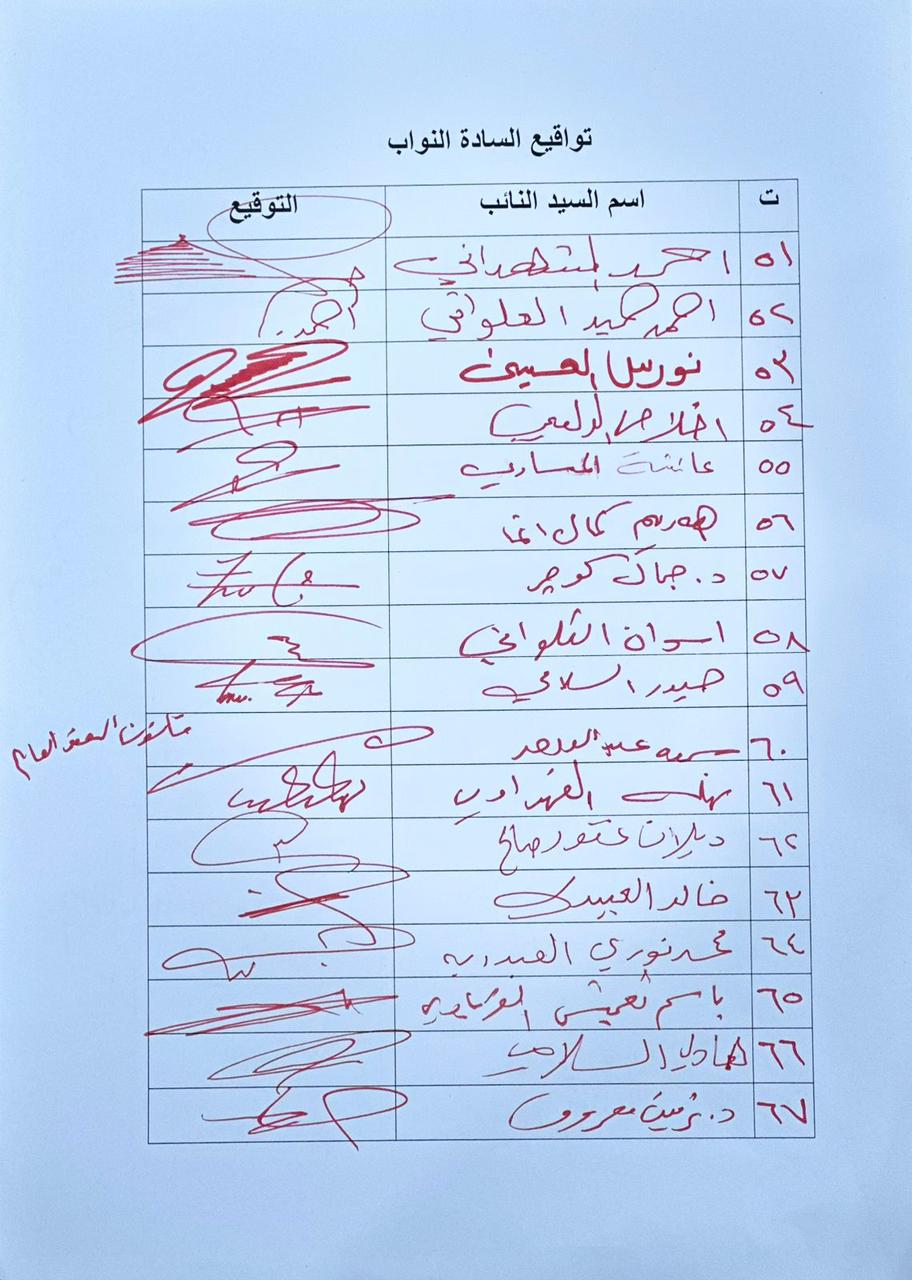 تواقيع السادة النواب
ت اسم السيد النائب التوقيع
٥١ احمد المشهداني
٥٢ احمد حميد العلواني احمد
٥٣ نورس العيسى
٥٤ اخلاص الدليمي
٥٥ عائشة المساري
٥٦ هه ريم كمال اغا
٥٧ د. جمال كوچر
٥٨ اسوان الكلواني
٥٩ حيدر السلامي
٦٠ عبد
٦١ نهله الفهداوي
٦٢ ديلان غفور صالح
٦٣ خالد العبيدي
٦٤ محمد نوري العبدربه
٦٥ باسم نغيمش الغريباوي
٦٦ هادي السلامي
٦٧ د. نرمين معروف